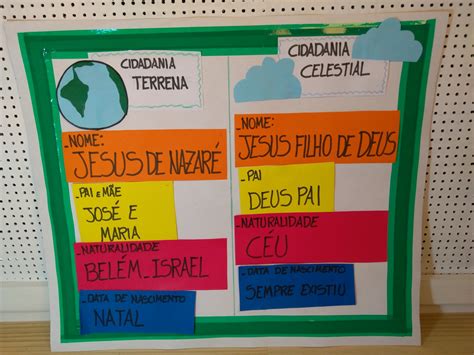 CIDADANIA
TERRENA
_NOME:
JESUS DE NAZARÉ
_PAI E MÃE
JOSÉ E
MARIA
_NATURALIDADE
BELÉM_ISRAEL
_DATA DE NASCIMENTO
NATAL
CIDADANIA
CELESTIAL
_NOME:
JESUS FILHO DE DEUS
_PAI
DEUS PAI
_NATURALIDADE
CÉU
_DATA DE NASCIMENTO
SEMPRE EXISTIU